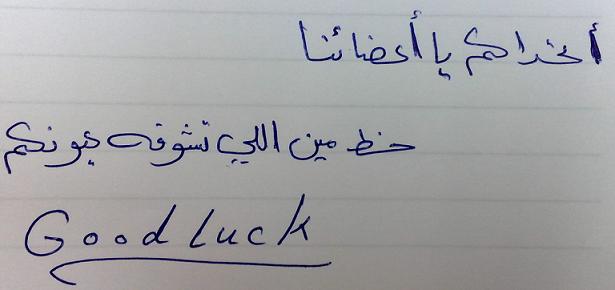 أتحداكم يا أعضائنا
حظ مين اللي تشوفه عيونكم
Good Luck